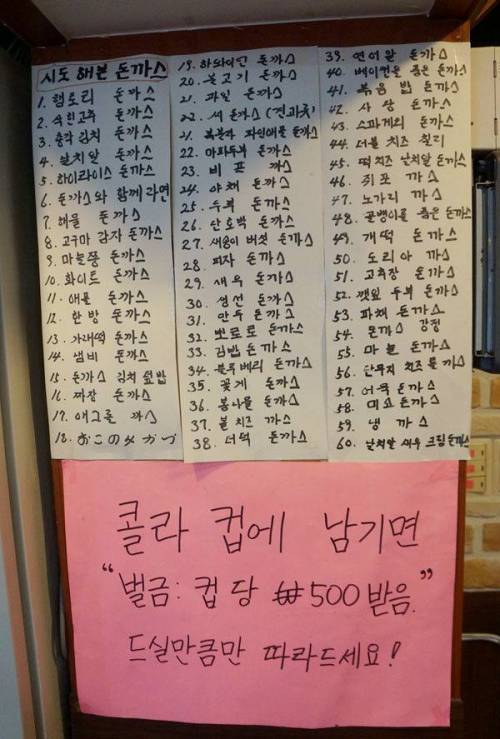 시도 해본 돈까스
1. 햄토리 돈까스
2. 속탄고추 돈까스
3. 총각 김치 돈까스
4. 날치알 돈까스
5. 하이라이스 돈까스
6. 돈까스와 함께 라면
7. 해물 돈까스
8. 고구마 감자 돈까스
9. 마늘쫑 돈까스
10. 화이트 돈까스
11. 애플 돈까스
12. 한방 돈까스
13. 가래떡 돈까스
14. 냄비 돈까스
15. 돈까스 김치 덮밥
16. 짜장 돈까스
17. 에그롤 까스
18. おこのみかつ
19. 하와이언 돈까스
20. 불고기 돈까스
21. 과일 돈까스
22. 씨 돈까스 (견과류)
21. 복분자 파인애플 돈까스
22. 마파두부 돈까스
23. 비프 까스
24. 야채 돈까스
25. 두부 돈까스
26. 단호박 돈까스
27. 새송이 버섯 돈까스
28. 피자 돈까스
29. 새우 돈까스
30. 생선 돈까스
31. 만두 돈까스
32. 뽀로로 돈까스
33. 김밥 돈까스
34. 블루베리 돈까스
35. 꽃게 돈까스
36. 봉나물 돈까스
37. 볼치즈 까스
38. 더덕 돈까스
39. 연어알 돈까스
40. 베이컨을 품은 돈까스
41. 볶음밥 돈까스
42. 사상 돈까스
43. 스파게티 돈까스
44. 더블 치즈 칠리
45. 떡 치즈 날치알 돈까스
46. 쥐포 까스
47. 노가리 까스
48. 골뱅이를 품은 돈까스
49. 개떡 돈까스
50. 도리아 까스
51. 고추장 돈까스
52. 깻잎 두부 돈까스
53. 파채 돈까스
54. 돈까스 강정
55. 마늘 돈까스
56. 단무지 치즈 롤까스
57. 어묵 돈까스
58. 미쇼 돈까스
59. 냉 까스
60. 날치알 새우 크림 돈까스
콜라 컵에 남기면
"벌금: 컵 당 ₩500 받음."
드실만큼만 따라드세요!